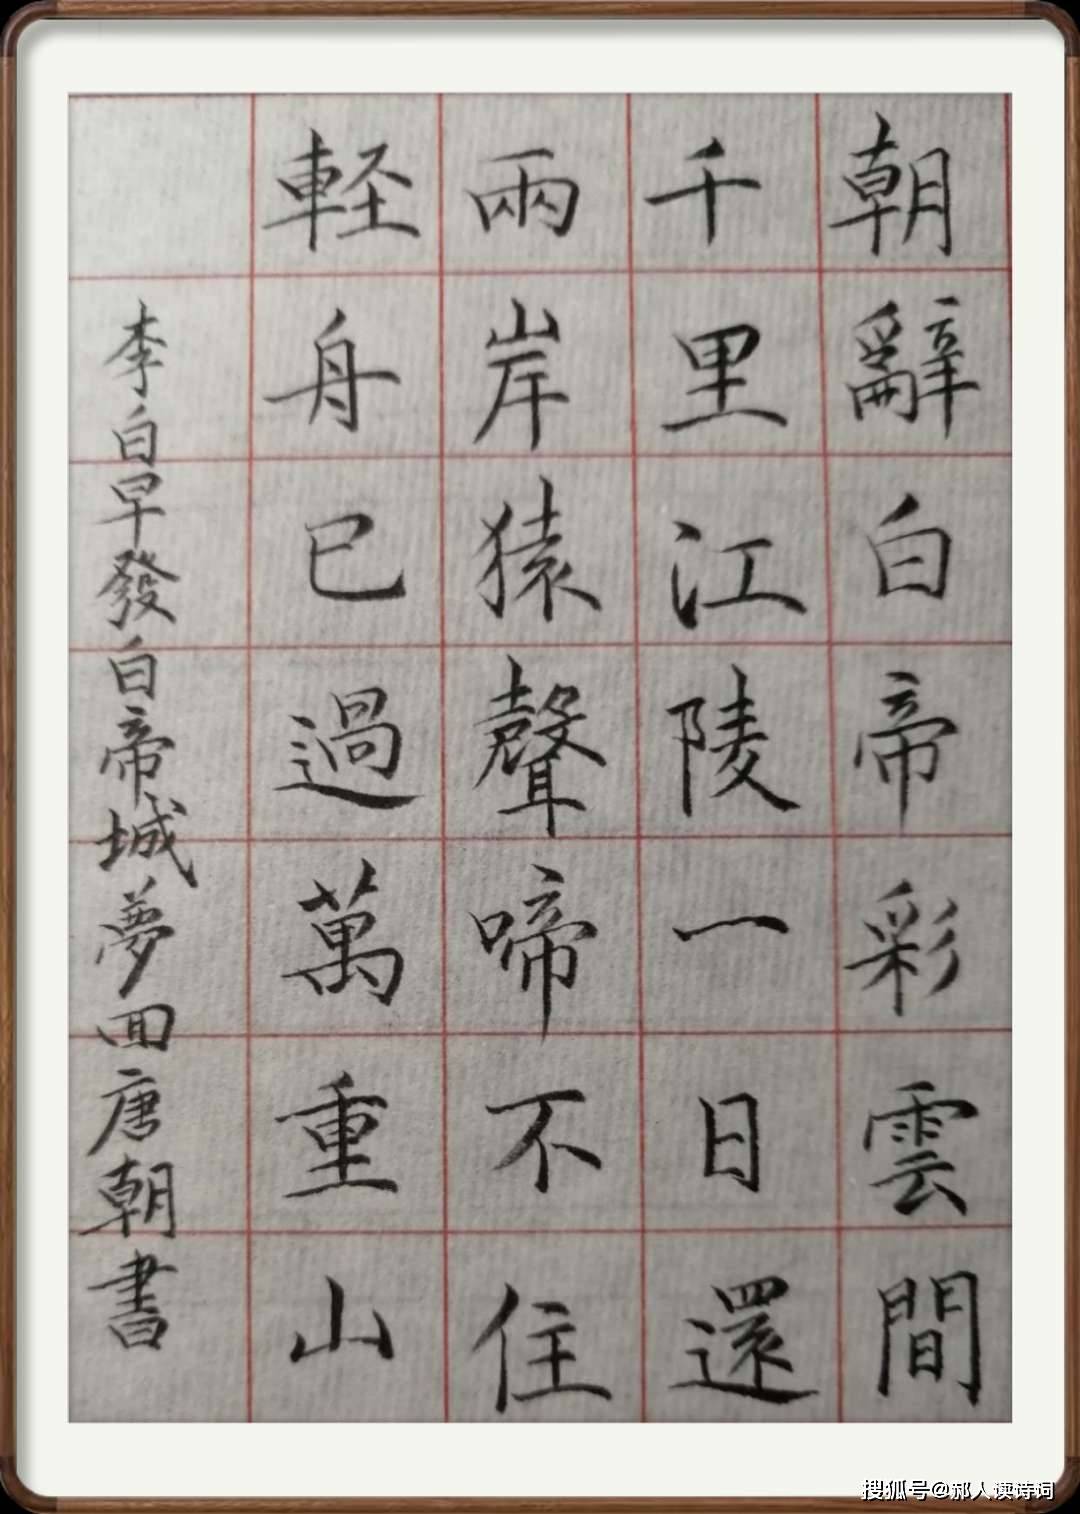 朝辭白帝彩雲間
千里江陵一日還
兩岸猿聲啼不住
軽舟已過萬重山
李白早發白帝城夢回唐朝書
搜狐号@郝人读诗词